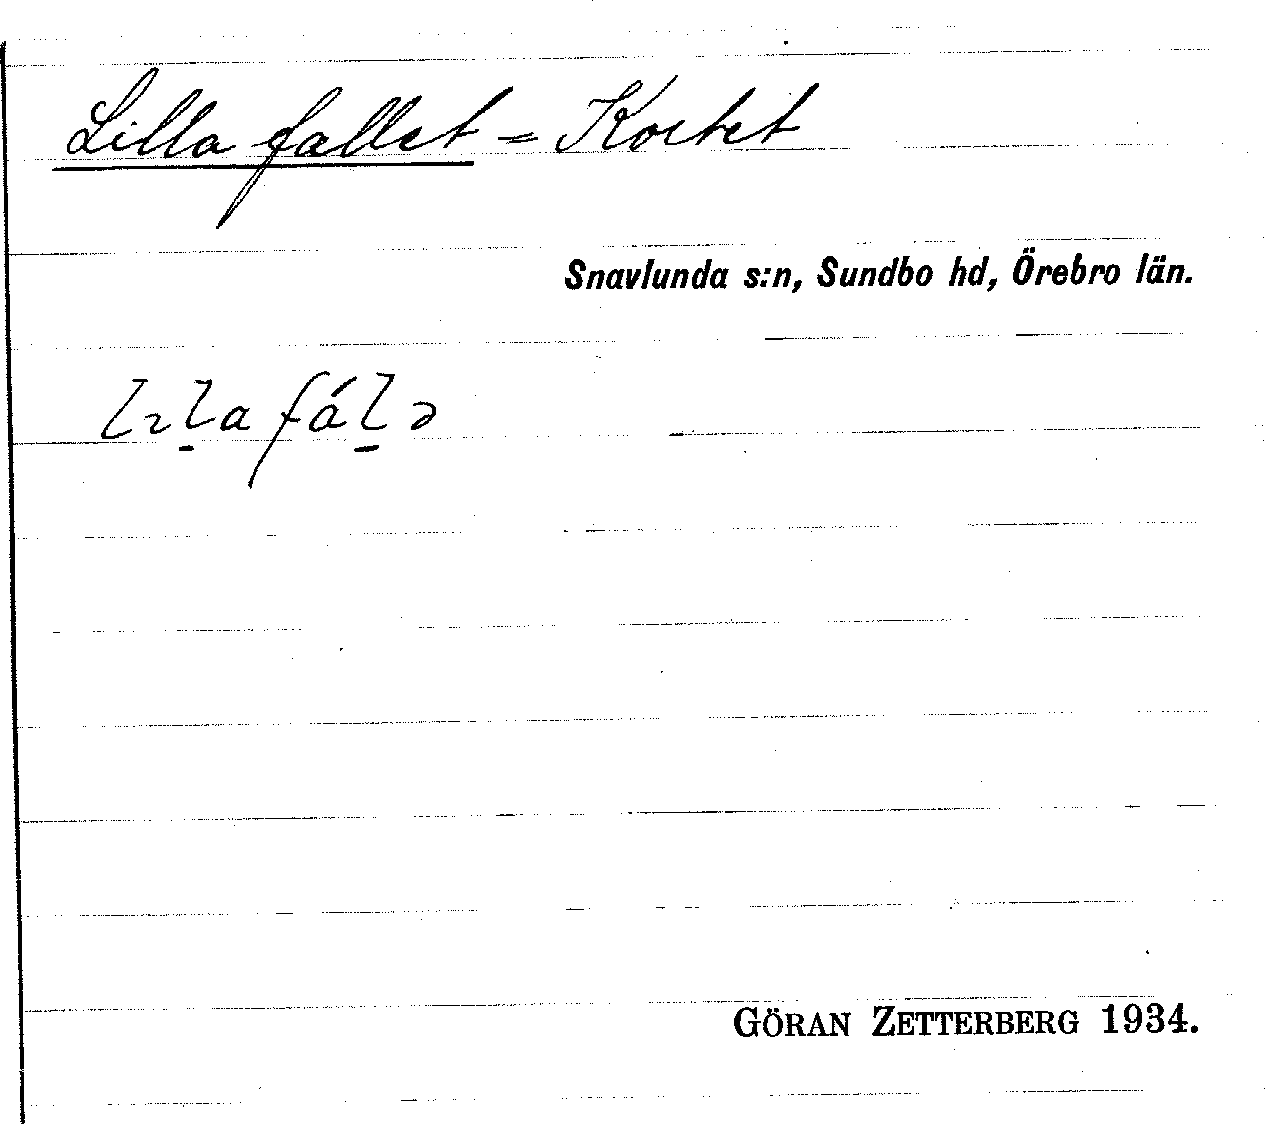 Lilla fallet = Kortet
Snavlunda s:n, Sundbo hd, Örebro län.
lıl̠a fál̠ə
GÖRAN ZETTERBERG 1934.